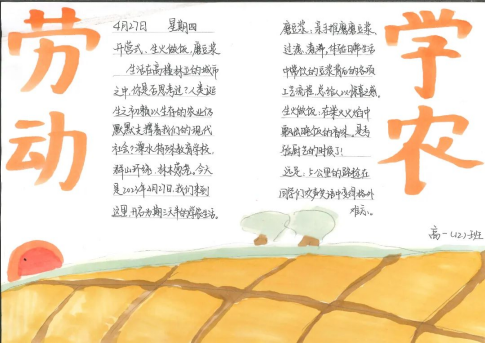 劳动
4月27日 星期四
开营式、生火做饭、磨豆浆
生活在高楼林立的城市
之中,你是否思考过?人类诞
生之初赖以生存的农业仍
默默支撑着我们的现代
社会?溧水特殊教育学校,
群山环绕,林木葱茏。今天
是2023年4月27日,我们来到
这里,开启为期三天半的学农生活。
磨豆浆:亲手推磨磨豆浆
过滤、煮沸,体验日常生活
中常饮的豆浆背后的各项
工艺流程,
生火做饭:在柴火火焰中
飘出晚饭的香味。
远足:5公里的路程在
同学们欢声笑语中变得格外
难忘。
学农
高一(12)班